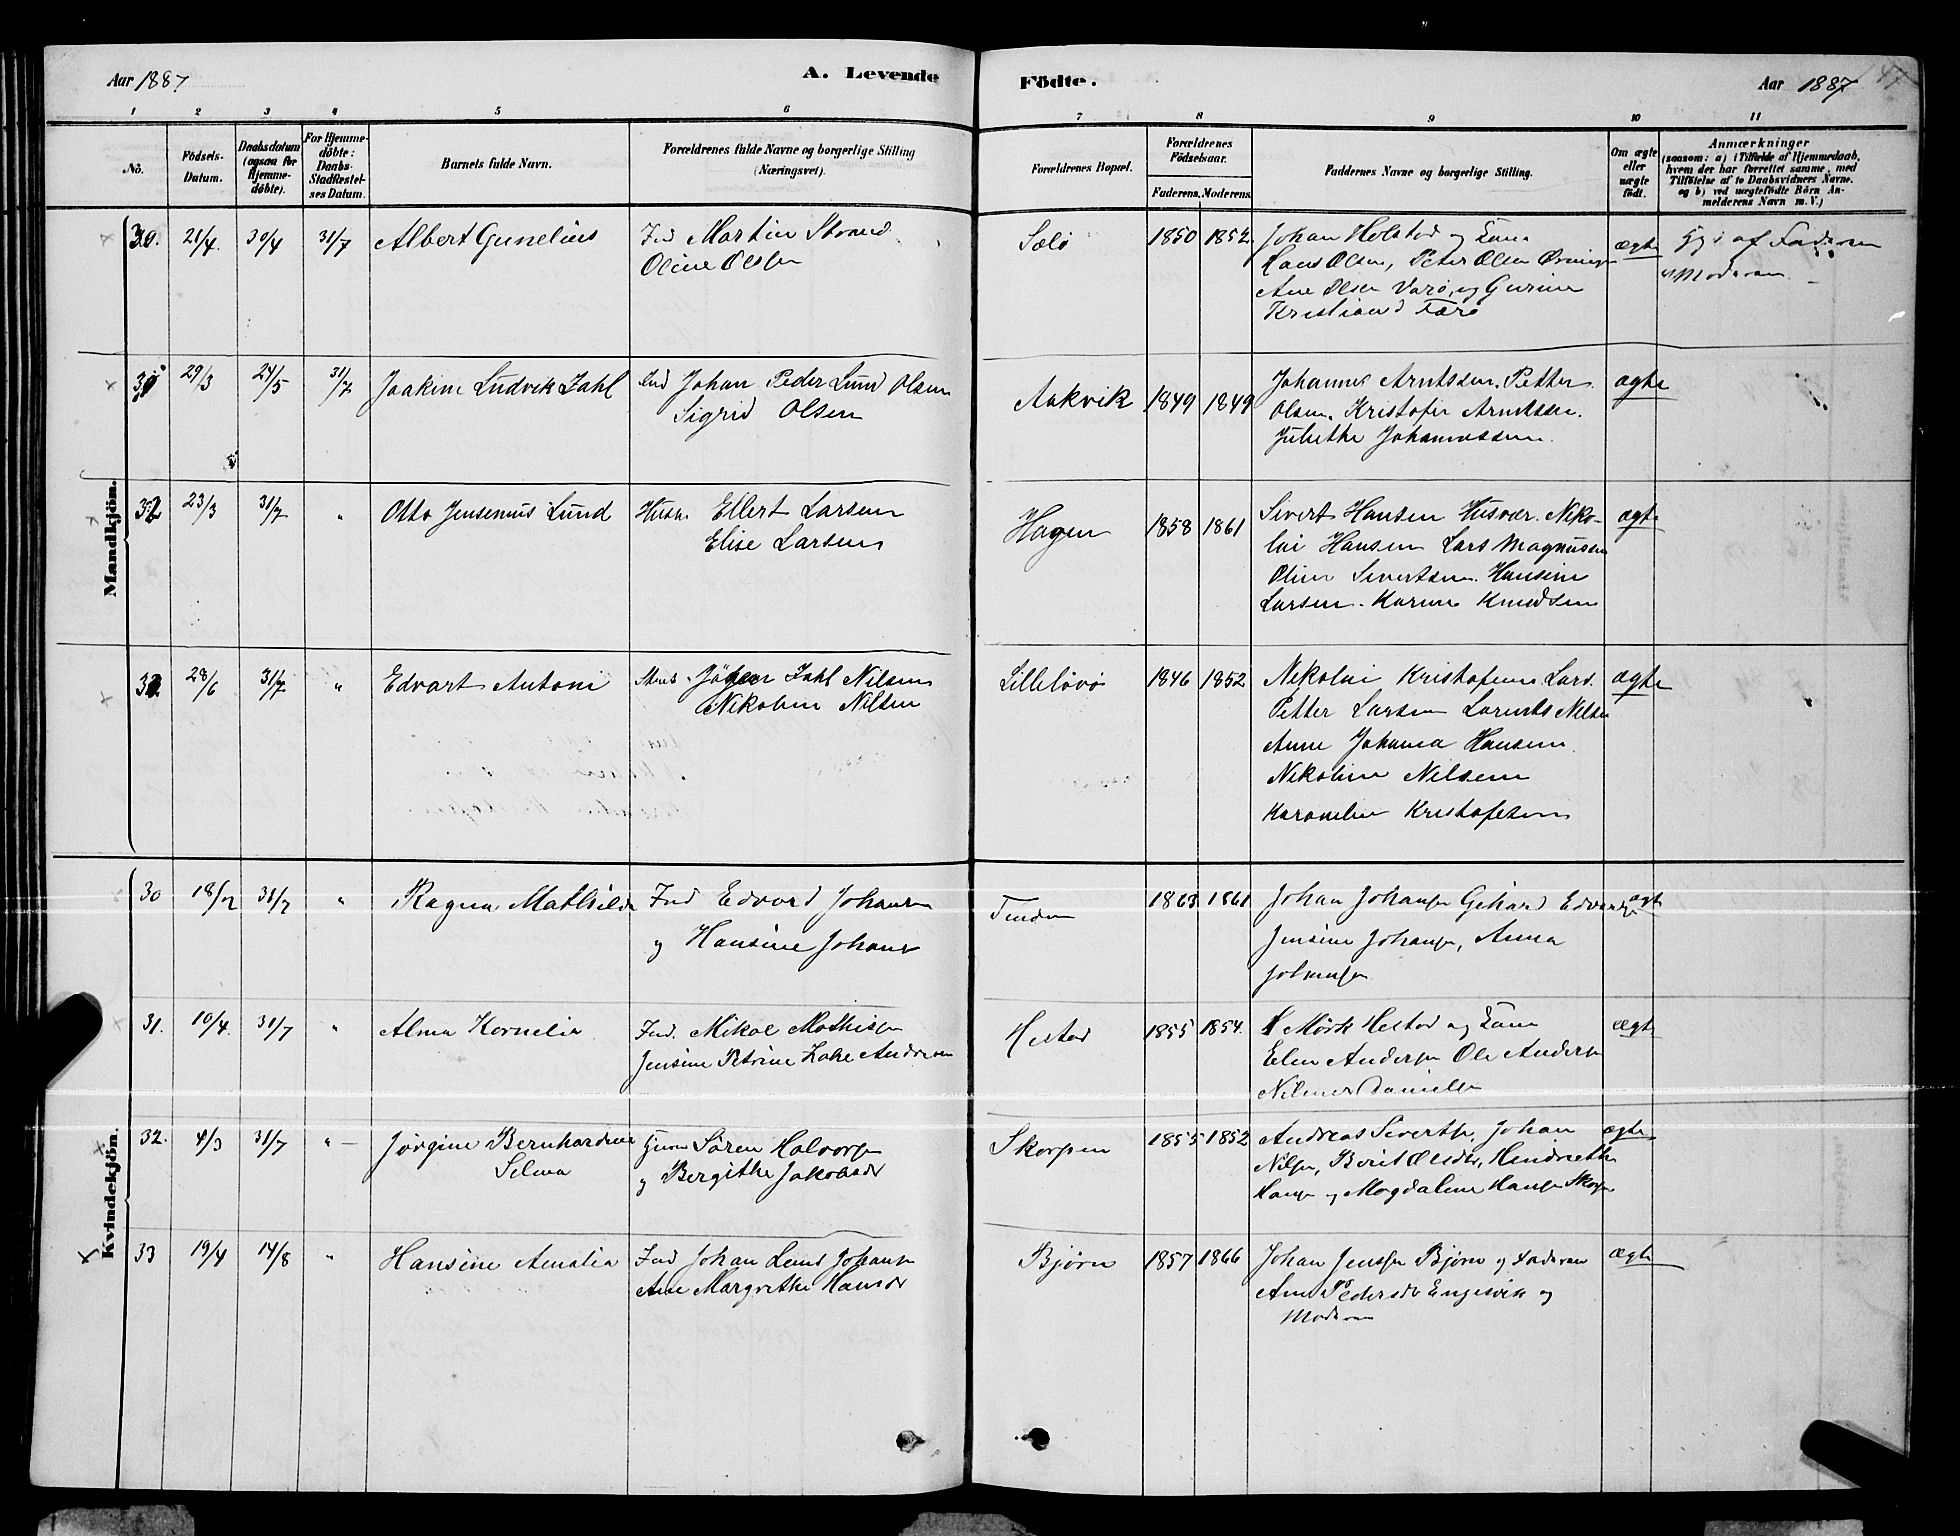 Aar 1887
A. Levende
Födte.
Aar 1887
1 2 3 4 5 6 7 8 9 10 11
No.
Födsels-
Datum.
Daabsdatum
(ogsaa for
Hjemme-
döbte).
For Hjemme-
döbte:
Daabs-
Stadfæstel-
ses Datum.
Barnets fulde Navn.
Forældrenes fulde Navne og borgerlige Stilling
(Næringsvei).
Forældrenes Bopæl.
Forældrenes
Födselsaar.
Faderens. Moderens.
Faddernes Navne og borgerlige Stilling.
Om ægte
eller
uægte
födt.
Anmærkninger
(saasom: a) i Tilfælde af Hjemmedaab,
hvem der har forrettet samme, med
Tilföielse af to Daabsvidners Navne.
og b) ved uægtefödte Börn An-
melderens Navn m. V.)
Mandkjön.
30. 21/4. 30/4 31/7 Albert Gunelius
Ind Martin Strand
Oline Olsen
Sælø 1850 1852.
Johan Holstad og
Hans Olsen, Peter Olsen
Ane Olsen Varø, og Gurine
Kristians Færø
ægte
af Faderen
Moderen
31 29/3 24/5 31/7 Joakim Ludvik Zahl
Ind Johan Peder Lund Olsen
Sigrid Olsen
Aakvik 1849 1849
Johannes Arntssen. Petter
Olsen. Kristofer Arntssen.
Julithe Johannessen.
ægte
32 23/3 31/7 " Otto Jensenius Lund
Husm. Ellert Larsen
Elise Larsen
Hagen 1858 1861
Sivert Hansen Husvær. Niko-
lai Hansen Lars Magnusen
Oline Sivertsen. Hansine
Larsen. Karine Knudsen
ægte
28/6 31/7 " Edvart Antoni
Jörgen Zahl Nilsen
Nikoline Nilsen
Lilleløvø 1846 1852
Nikolai Kristofersen Lars.
Petter Larsen Lorents Nilsen
Anne Johanna Hansen.
Nikoline Nilsen
Karoneline Kristofersen
ægte
Kvindekjön.
30 18/2 31/7 " Ragna Mathilde
Ind Edvard Johansen
og Hansine Johans
1863 1861
Johan Johansen Gehard Edvards
Jensine Johansen, Anna
Johansen
ægte
31. 10/4. 31/7 " Alma Kornelia
Ind. Mikal Mathisen
Jensine Petrine Andersen
Hestad 1855 1854.
Mørk Hestad og
Elen Andersen Ole Andersen
Danielsen
ægte
32. 4/3 31/7 " Jørgine Bernhardine
Selma
Søren Halvorsen
og Bergithe Jakobsdr
Skorpen 1855 1852
Andreas Sivertsen, Johan
Nilsen, Berit Olsdtr, Hendriette
Hansen og Magdalene Hansen Skorpen
ægte
33 19/4 14/8 " Hansine Amalia
Ind Johan Lund Johansen
Ane Margrethe Hansdr
Bjørn 1857 1866
Johan Jenssen Bjørn og Faderen
Ane Pedersdr Engesvik og
Moderen
ægte